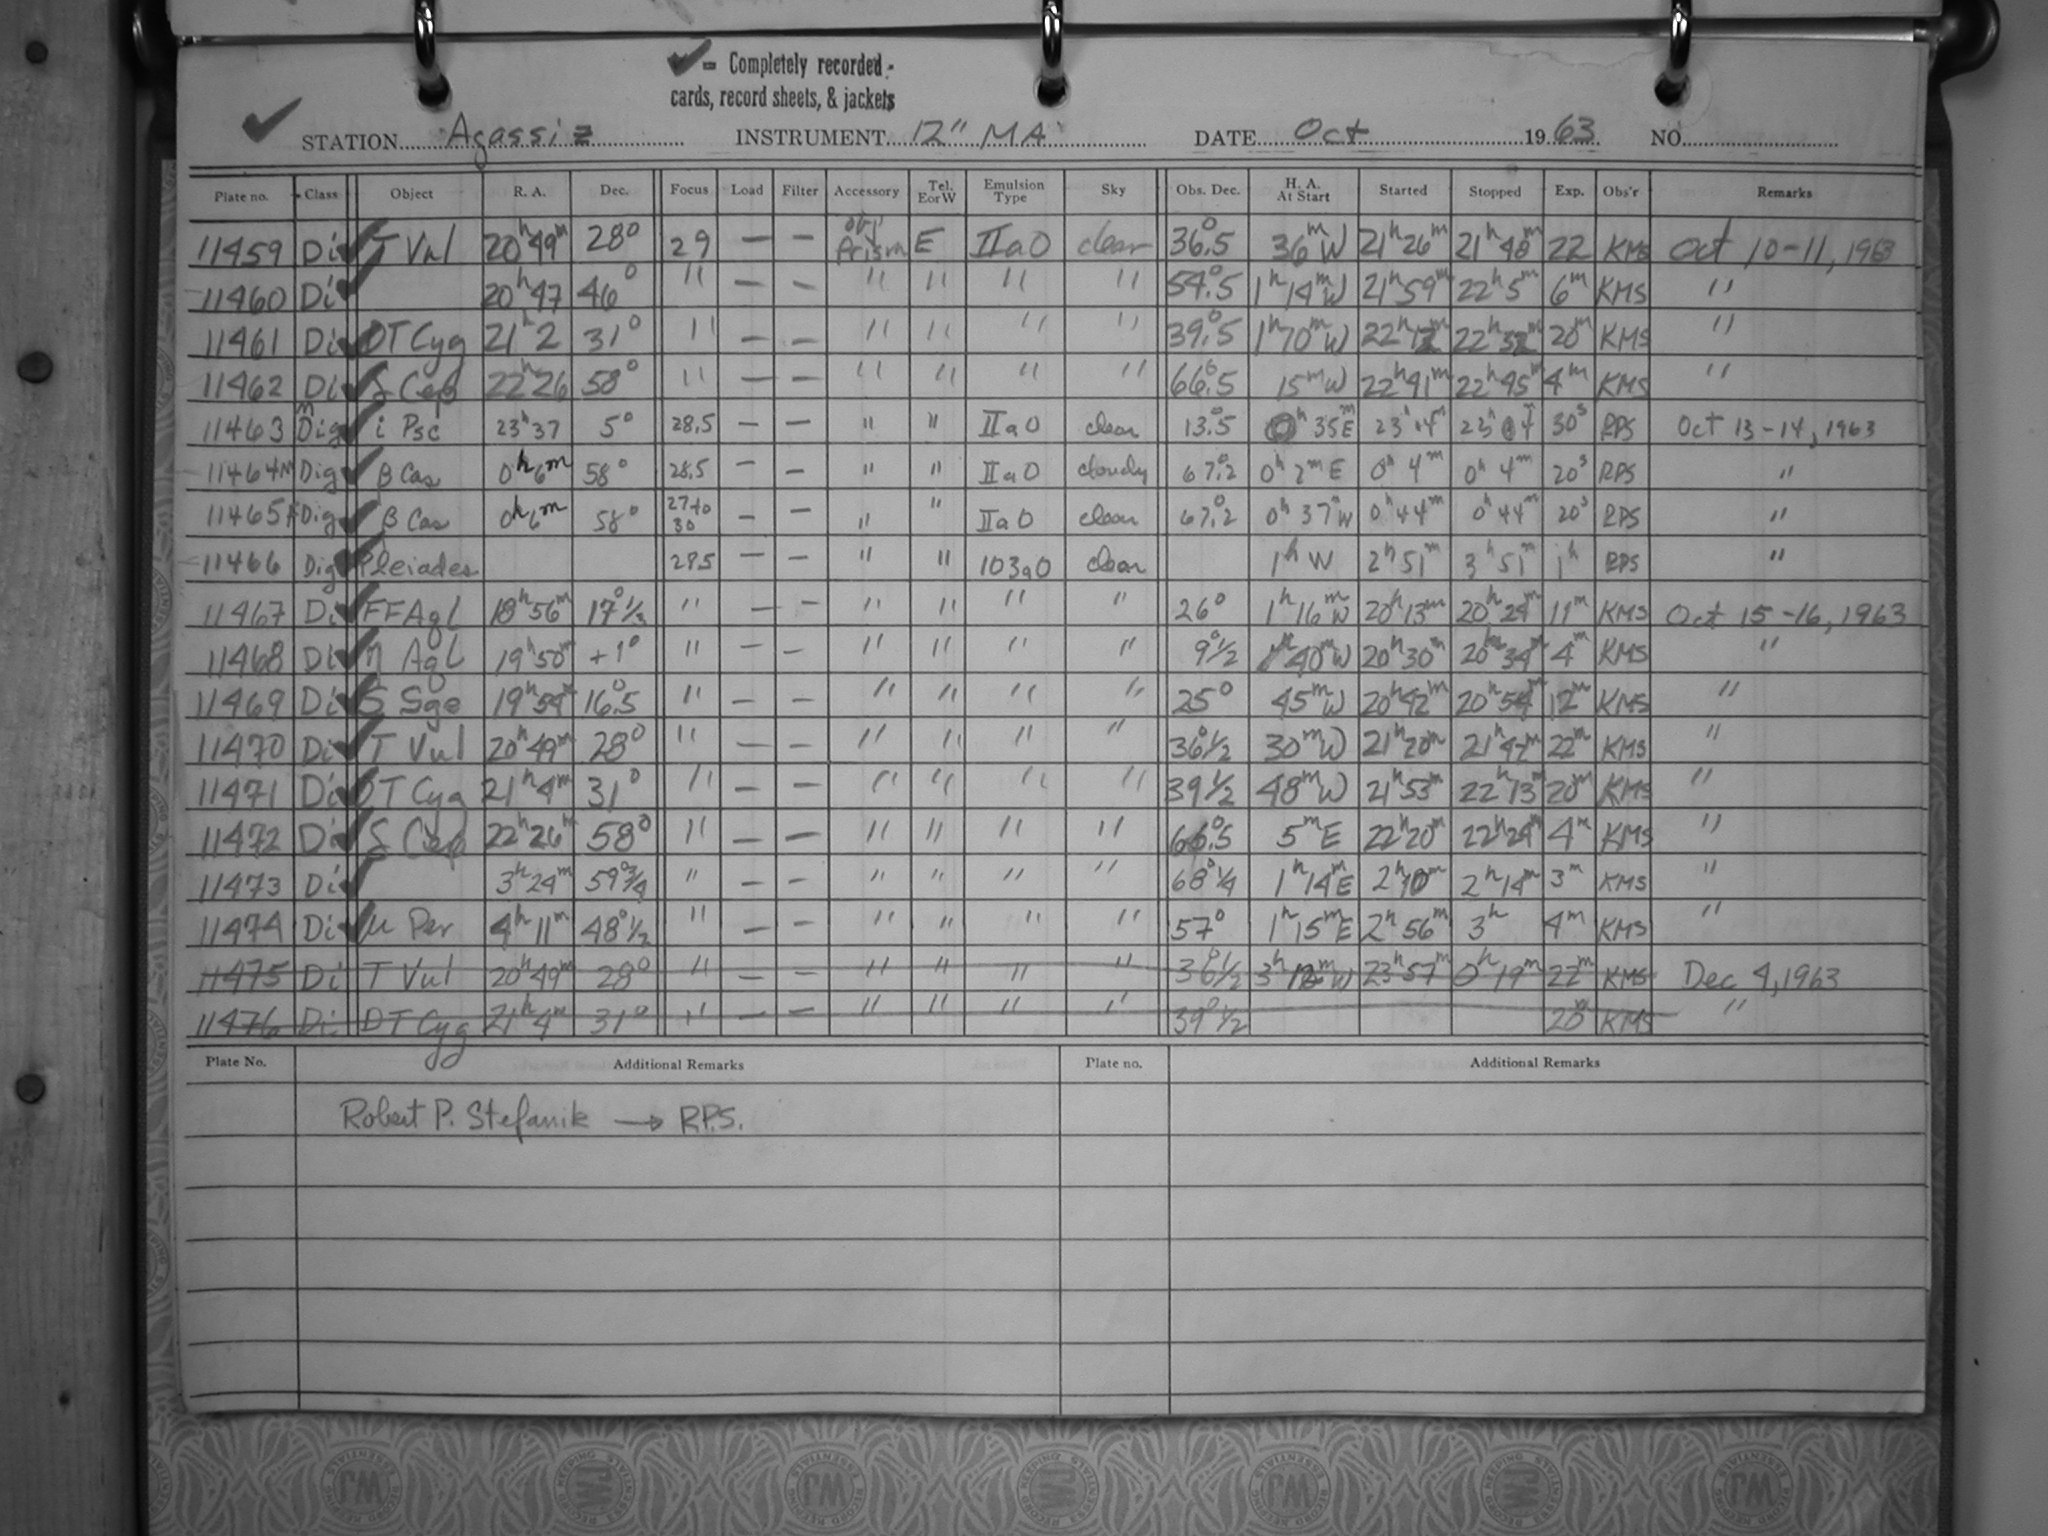 ✓ = Completely recorded -
cards, record sheets, & jackets
✓ STATION Agassiz INSTRUMENT 12" MA DATE Oct 1963 NO.
Plate no. Class Object R. A. Dec. Focus Load Filter Accessory Tel. E or W Emulsion Type Sky Obs. Dec. H. A. At Start Started Stopped Exp. Obs'r Remarks
11459 Di ✓ T Vul 20h 49m 28° 29 — — obj Prism E IIaO clear 36°.5 36m W 21h 26m 21h 48m 22 KMS Oct 10-11, 1963
11460 Di ✓ 20h 47 46° " — — " " " " 54°.5 1h 14m W 21h 59m 22h 5m 6m KMS "
11461 Di ✓ DT Cyg 21h 2 31° " — — " " " " 39°.5 1h 70m W 22h 12m 22h 32m 20m KMS "
11462 Di ✓ δ Cep 22h 26 58° " — — " " " " 66°.5 15m W 22h 41m 22h 45m 4m KMS "
11463 m Dig ✓ i Psc 23h 37 5° 28.5 — — " " IIaO clear 13°.5 0h 35m E 23h 4m 23h 04m 30s RPS Oct 13-14, 1963
11464 M Dig ✓ β Cas 0h 6m 58° 28.5 — — " " IIaO cloudy 67°.2 0h 2m E 0h 4m 0h 4m 20s RPS "
11465 F Dig ✓ β Cas 0h 6m 58° 27 to 30 — — " " IIaO clear 67°.2 0h 37m W 0h 44m 0h 44m 20s RPS "
11466 Dig ✓ Pleiades 28.5 — — " " 103aO clear 1h W 2h 51m 3h 51m 1h RPS "
11467 Di ✓ FF Aql 18h 56m 17° 1/2 " — — " " " " 26° 1h 16m W 20h 13m 20h 24m 11m KMS Oct 15-16, 1963
11468 Di ✓ η Aql 19h 50m +1° " — — " " " " 9° 1/2 40m W 20h 30m 20h 34m 4m KMS "
11469 Di ✓ S Sge 19h 54m 16°.5 " — — " " " " 25° 45m W 20h 42m 20h 54m 12m KMS "
11470 Di ✓ T Vul 20h 49m 28° " — — " " " " 36° 1/2 30m W 21h 20m 21h 42m 22m KMS "
11471 Di ✓ DT Cyg 21h 4m 31° " — — " " " " 39 1/2 48m W 21h 53m 22h 13m 20m KMS "
11472 Di ✓ δ Cep 22h 26m 58° " — — " " " " 66°.5 5m E 22h 20m 22h 24m 4m KMS "
11473 Di ✓ 3h 24m 59° 3/4 " — — " " " " 68° 1/4 1h 14m E 2h 10m 2h 14m 3m KMS "
11474 Di ✓ μ Per 4h 11m 48° 1/2 " — — " " " " 57° 1h 15m E 2h 56m 3h 4m KMS "
11475 Di T Vul 20h 49m 28° " — — " " " " 36° 1/2 3h 12m W 23h 57m 0h 19m 22m KMS Dec 4, 1963
11476 Di DT Cyg 21h 4m 31° " — — " " " " 39° 1/2 20m KMS "
Plate No. Additional Remarks Plate no. Additional Remarks
Robert P. Stefanik → R.P.S.